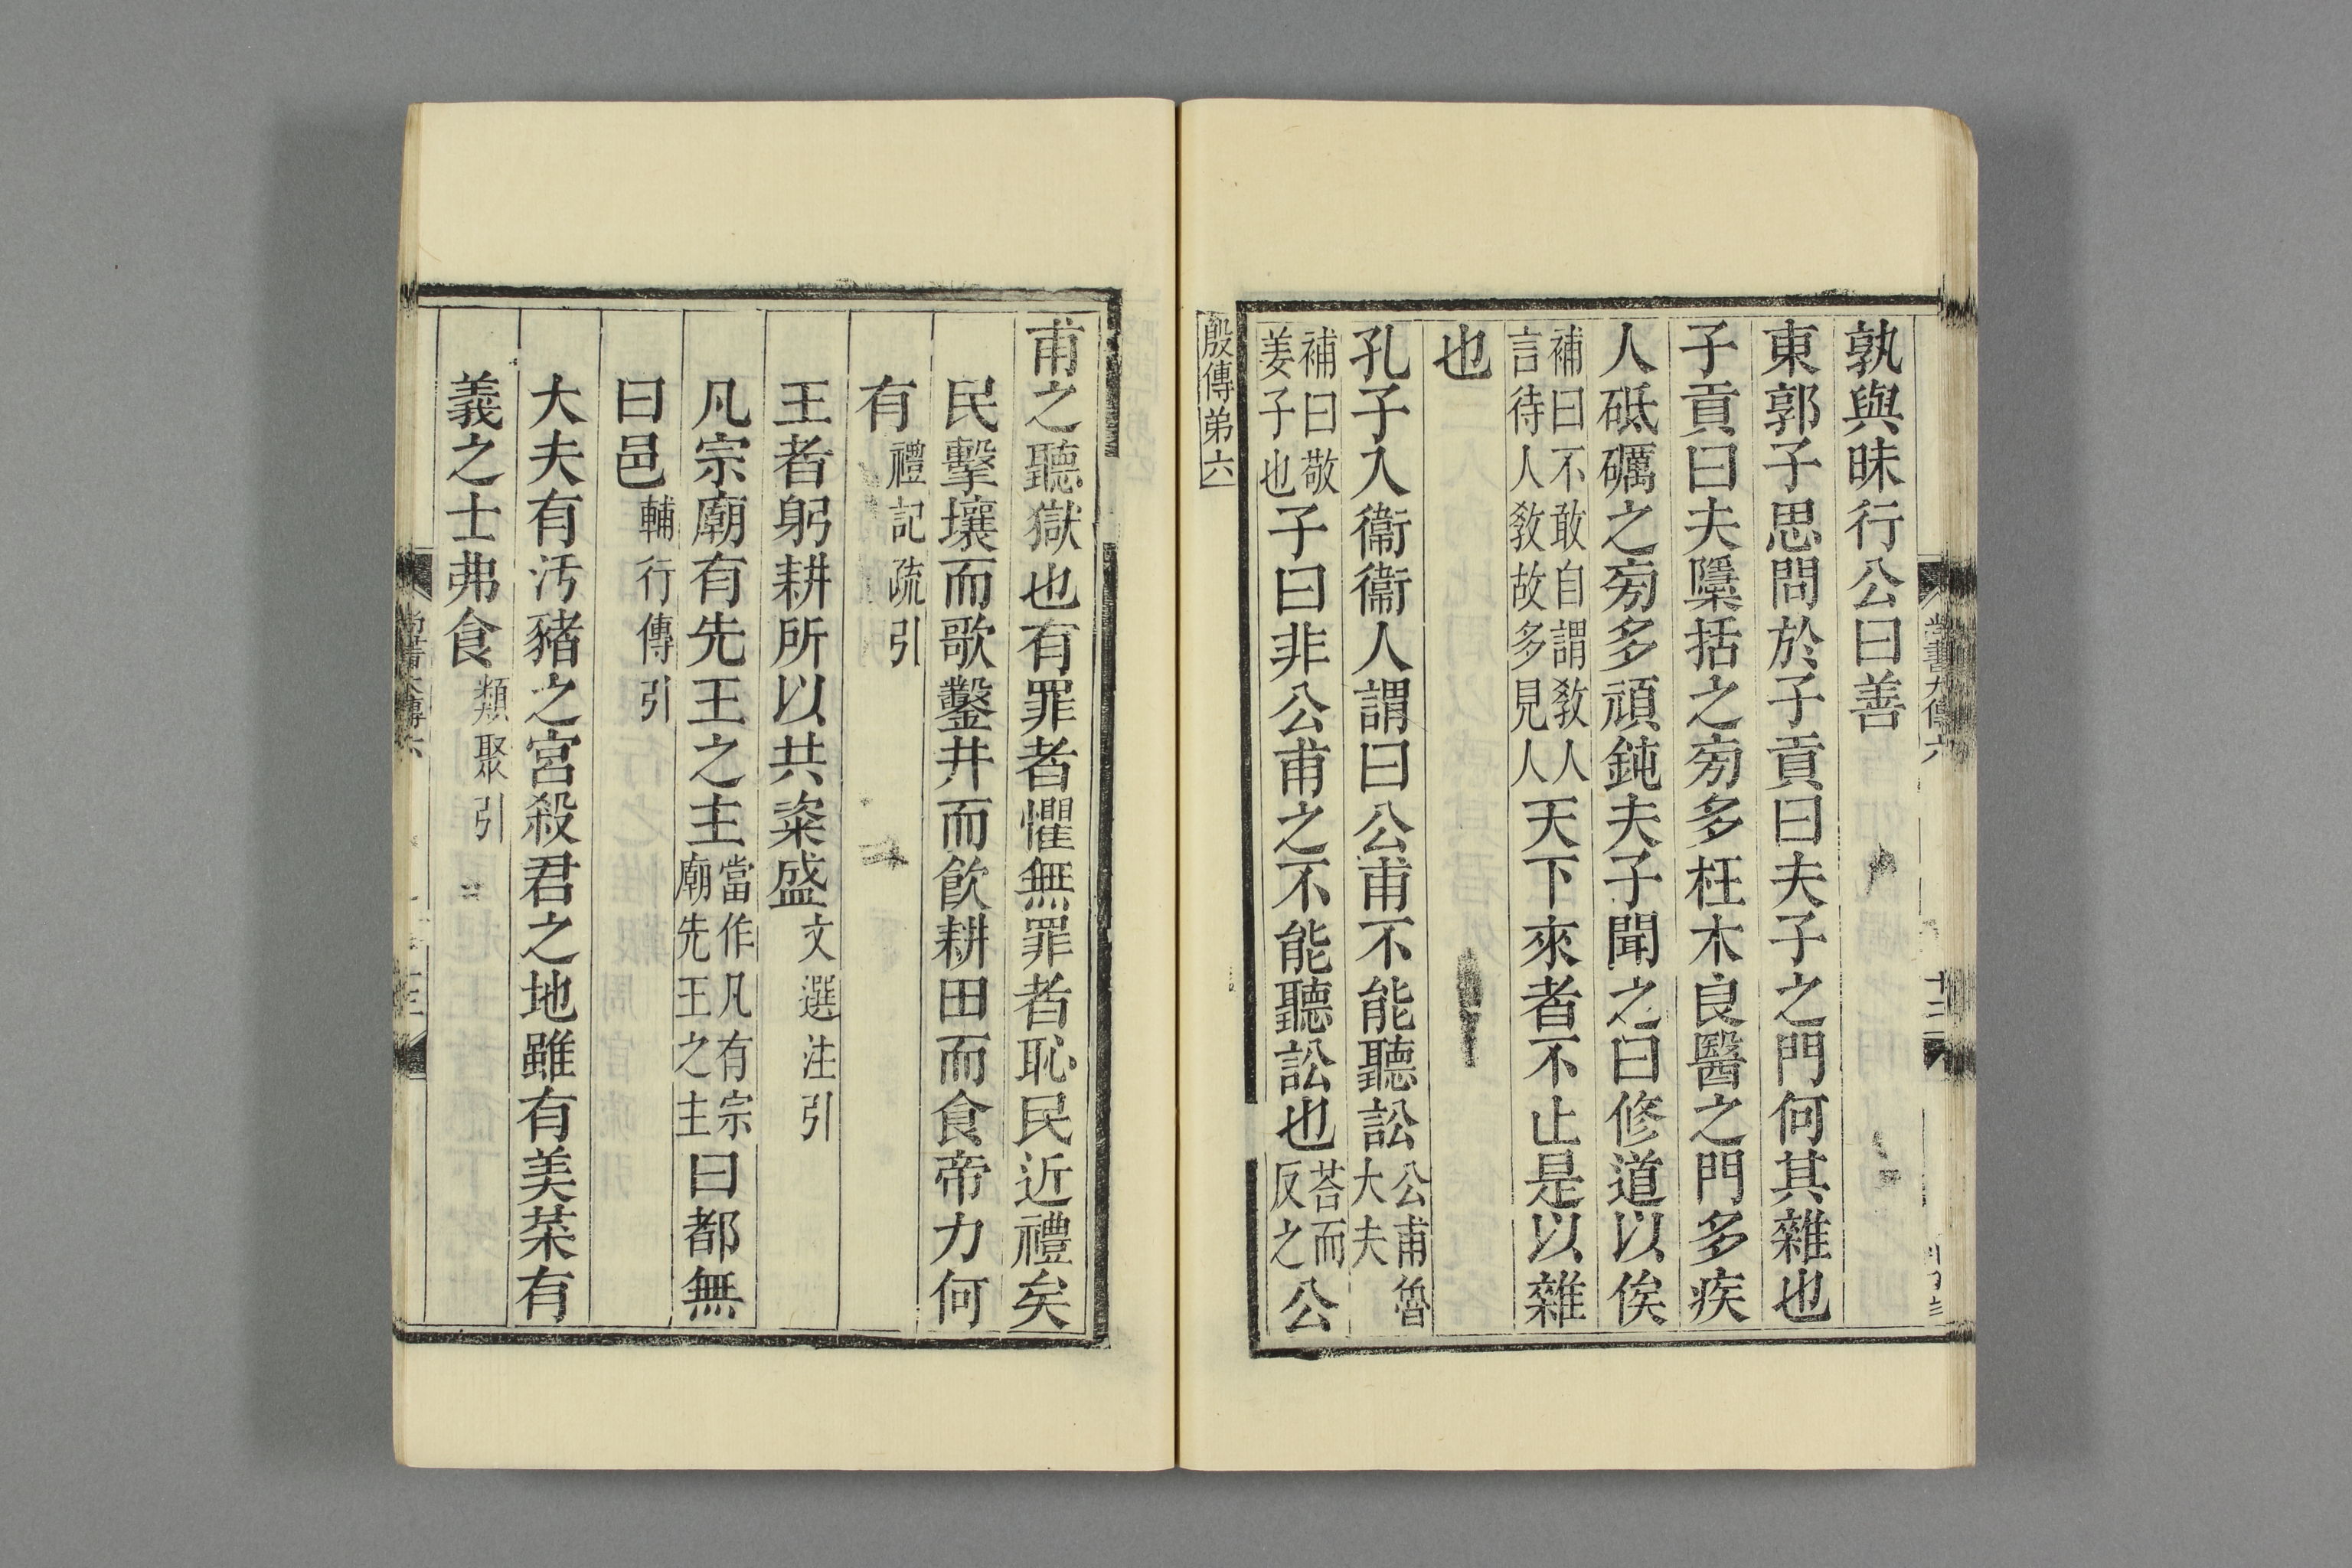 孰與昧行公曰善
東郭子思問於子貢曰夫子之門何其雜也
子貢曰夫隱栝之㫄多枉木良醫之門多疾
人砥礪之㫄多頑鈍夫子聞之曰修道以俟
補曰不敢自謂敎人
言待人敎故多見人
天下來者不止是以雜
也
孔子入衞衞人謂曰公甫不能聽訟
公甫魯
大夫
補曰敬
姜子也
子曰非公甫之不能聽訟也
荅而
反之
公
殷傳弟六
甫之聽獄也有罪者懼無罪者恥民近禮矣
民擊壤而歌鑿井而飮耕田而食帝力何
有禮記疏引
王者躬耕所以共粢盛文選注引
凡宗廟有先王之主
當作凡有宗
廟先王之主
曰都無
曰邑輔行傳引
大夫有汚豬之宮殺君之地雖有美菜有
義之士弗食類聚引